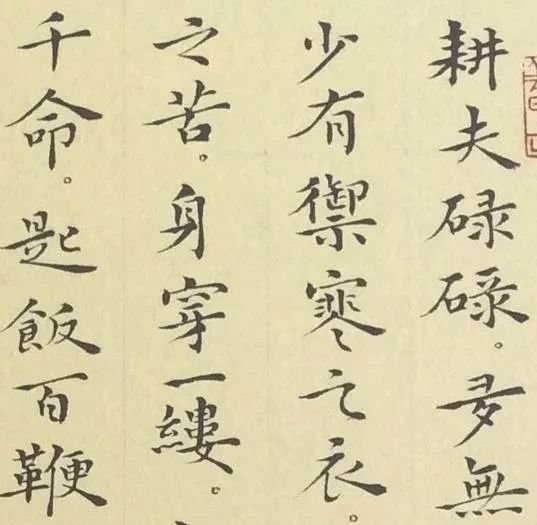 耕夫碌碌。多無
少有禦寒之衣。
之苦。身穿一縷。
千命。匙飯百鞭